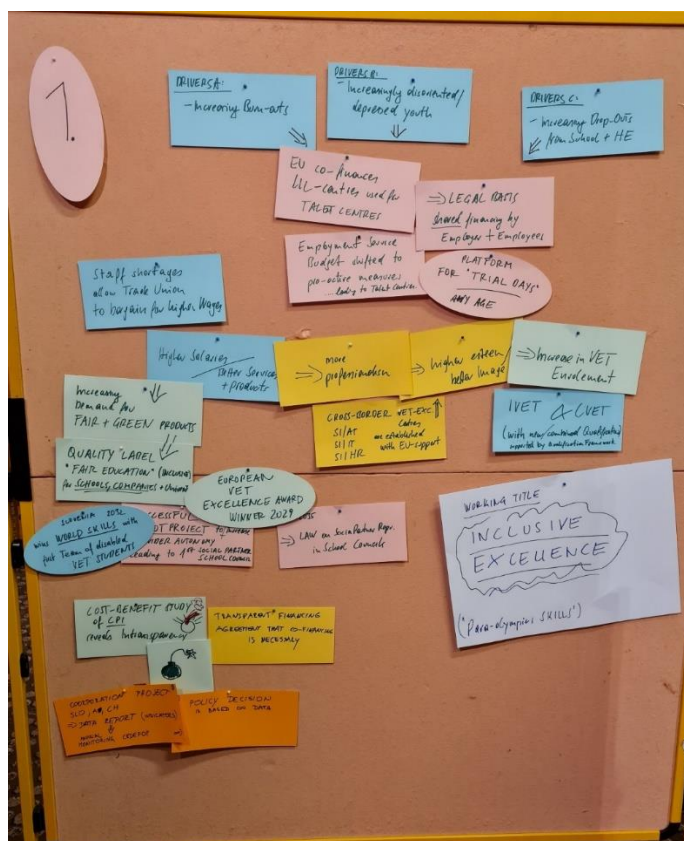 1.
DRIVERS A:
- Increasing Burn-outs
DRIVERS B:
- Increasingly disoriented/
depressed youth
DRIVERS C:
- Increasing Drop-Outs
from School + HE
EU co-finances
LLL-centres used for
TALET CENTRES
⇒ LEGAL BASIS
shared financing by
Employer + Employees
Employment Service
Budget shifted to
pro-active measures
...leading to Talent Centres
PLATFORM
FOR "TRIAL DAYS"
ANY AGE
Staff shortages
allow Trade Union
to bargain for higher Wages
Higher Salaries
Better Services
+ products
⇒ more
professionalism
⇒ higher esteem/
better Image
⇒ Increase in VET
Enrolement
Increasing
Demand for
FAIR + GREEN PRODUCTS
CROSS-BORDER VET-EXC
Centres
SI/AT
SI/IT
SI/HR
are established
with EU-support
IVET & CVET
(with new/combined Qualifications
supported by Qualification Framework
QUALITY LABEL
"FAIR EDUCATION" (INCLUSIVE)
for SCHOOLS, COMPANIES +
EUROPEAN
VET
EXCELLENCE AWARD
WINNER 2029
SLOVENIA 2032
wins WORLD SKILLS with
full Team of disabled
VET STUDENTS
CESSFUL
OT PROJECT to
DER AUTONOMY
leading to 1st SOCIAL PARTNER
SCHOOL COUNCIL
⇒ LAW on Social Partner Repr.
in School Councils
WORKING TITLE
INCLUSIVE
EXCELLENCE
("Para-olympics SKILLS")
COST-BENEFIT STUDY
of CPI
reveals Intransparency
"TRANSPARENT" FINANCING
AGREEMENT THAT CO-FINANCING
IS NECESSARY
COOPERATION PROJECT
SLO, A, CH
⇒ DATA REPORT (INDICATORS)
MONITORING
POLICY DECISION
IS BASED ON DATA